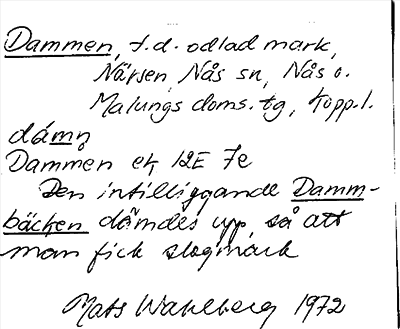 Dammen, f.d. odlad mark,
Närsen, Nås sn, Nås o.
Malungs doms. tg, Kopp. l.
dámn̥
Dammen ek 12E 7e
Den intilliggande Damm-
bäcken dämdes upp, så att
man fick slogmark
Mats Wahlberg 1972